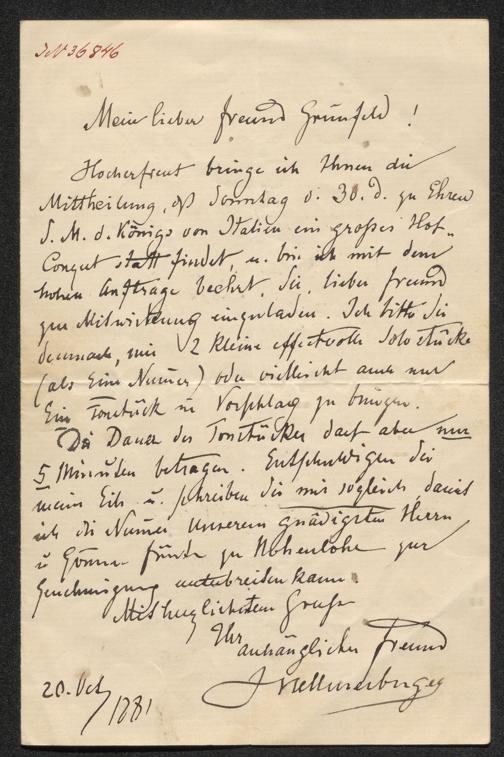 JN 36846
Mein lieber Freund Grünfeld !
Hocherfreut bringe ich Ihnen die
Mittheilung, dß Sonntag d. 30. d. zu Ehren
S. M. d. Königs von Italien ein großes Hof-
Concert statt findet, u. bin ich mit dem
hohen Auftrage beehrt, Sie, lieber Freund
zur Mitwirkung einzuladen. Ich bitte Sie
demnach, mir 2 kleine effectvolle Solostücke
(als Eine Numer) oder vielleicht auch nur
Ein Tonstück in Vorschlag zu bringen.
Die Dauer des Tonstückes darf aber nur
5 Minuten betragen. Entschuldigen Sie
meine Eile u. schreiben Sie mir sogleich, damit
ich die Numer unserem gnädigsten Herrn
u Gönner Fürst zu Hohenlohe zur
Genehmigung unterbreiten kann.
Mit herzlichstem Gruße
Ihr
anhänglicher Freund
J Hellmesberger
20. Oct / 1881